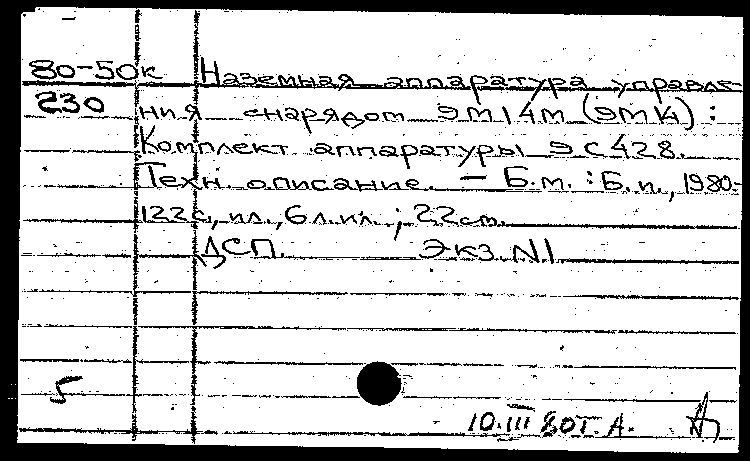 80-50к Наземная аппаратура управле-
230 ния снарядом 9М14М (9М14) :
Комплект аппаратуры 9С428.
Техн. описание. — Б.м. : Б.и., 1980.-
122с., ил., 6 л.ил. ; 22 см.
ДСП. Экз. N1
5
10.III 80г. А.